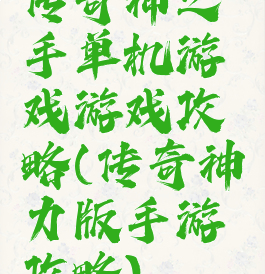 传奇神之
手单机游
戏游戏攻
略(传奇神
力版手游
攻略)